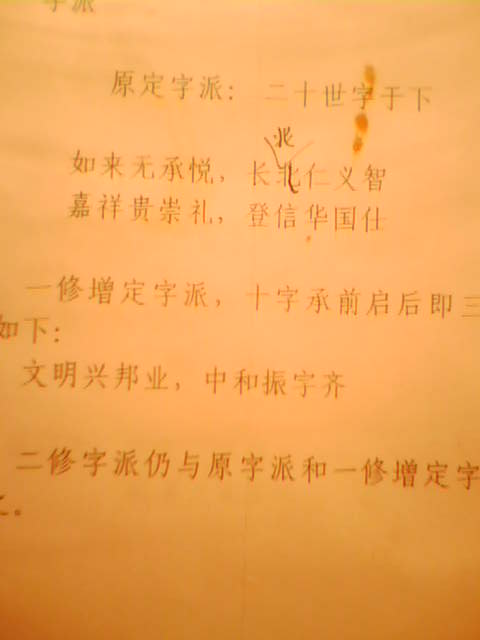 字派
原定字派： 二十世字于下
兆
如来无承悦，长北仁义智
嘉祥贵崇礼，登信华国仕
一修增定字派，十字承前启后即三
如下：
文明兴邦业，中和振宇齐
二修字派仍与原字派和一修增定字